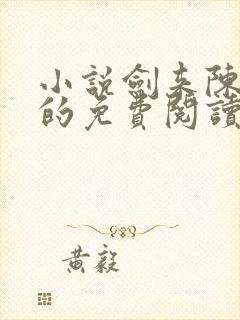 小說劍來陳
的免費閱讀
黃毅